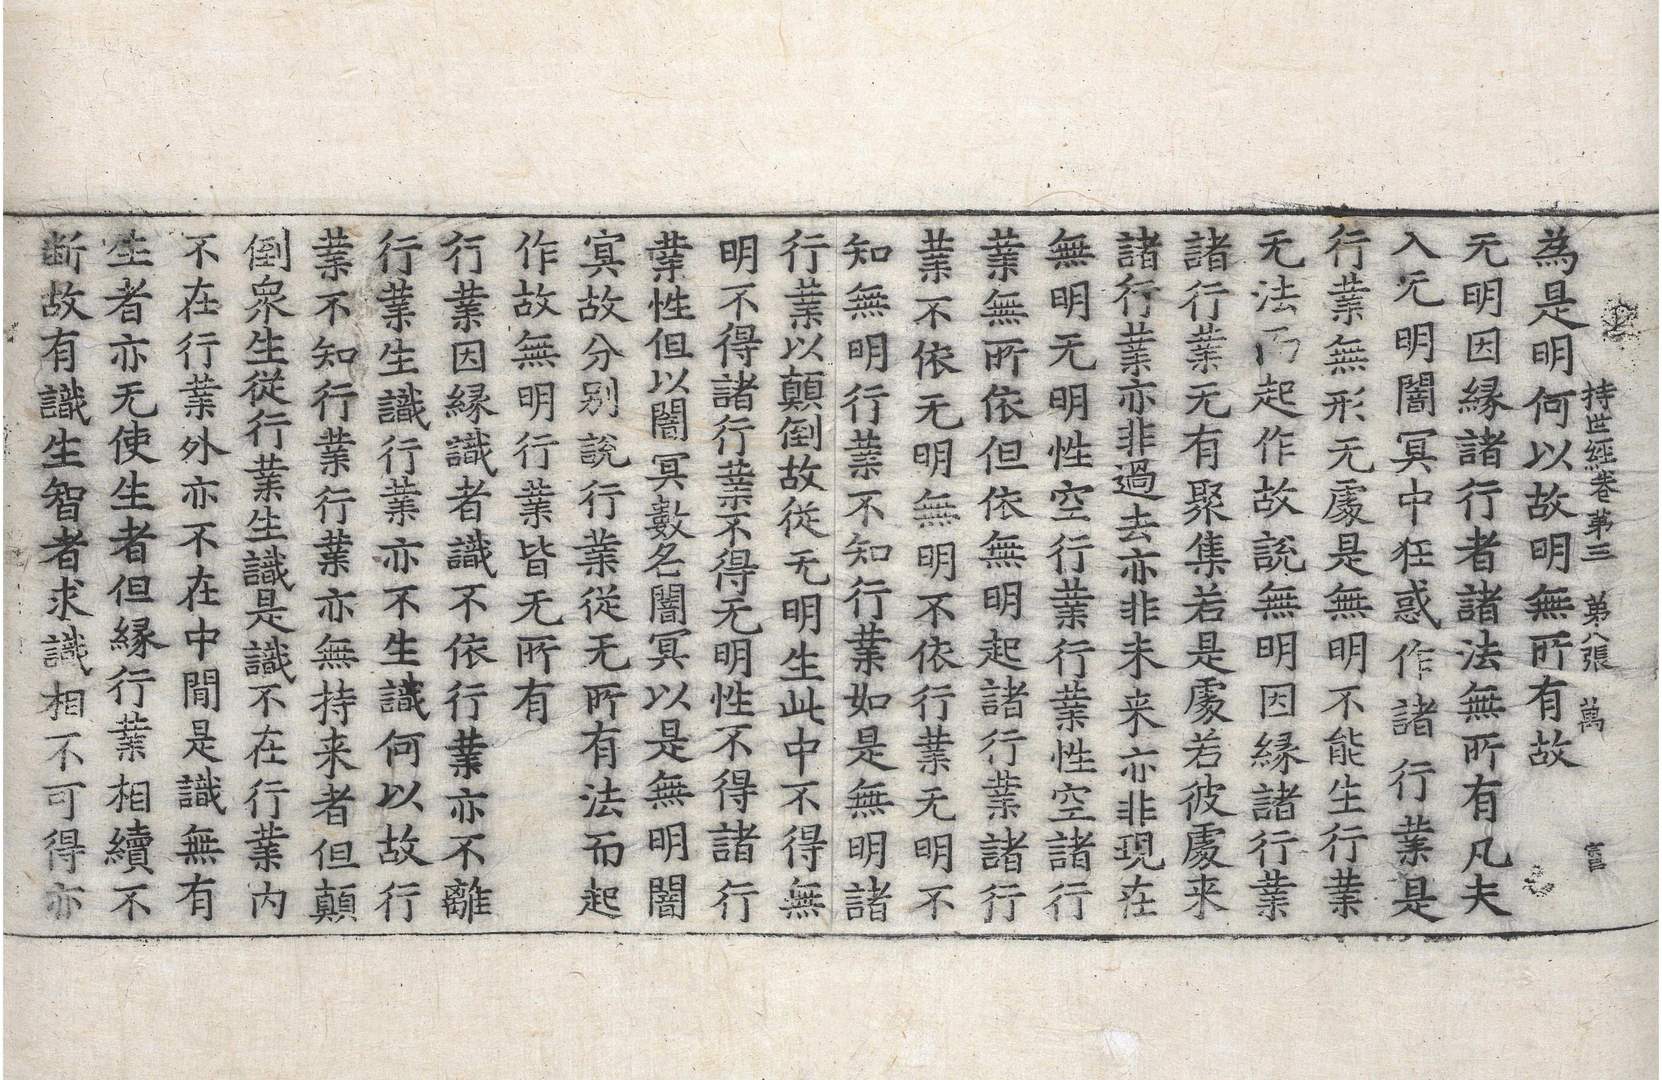 持世經卷第三　第八張　萬
為是明何以故明無所有故
无明因緣諸行者諸法無所有凡夫
入无明闇冥中狂惑作諸行業是
行業無形无處是無明不能生行業
无法而起作故說無明因緣諸行業
諸行業无有聚集若是處若彼處来
諸行業亦非過去亦非未来亦非現在
無明无明性空行業行業性空諸行
業無所依但依無明起諸行業諸行
業不依无明無明不依行業无明不
知無明行業不知行業如是無明諸
行業以顛倒故從无明生此中不得無
明不得諸行業不得无明性不得諸行
業性但以闇冥數名闇冥以是無明闇
冥故分別說行業從无所有法而起
作故無明行業皆无所有
行業因緣識者識不依行業亦不離
行業生識行業亦不生識何以故行
業不知行業行業亦無持来者但顛
倒衆生從行業生識是識不在行業內
不在行業外亦不在中間是識無有
生者亦无使生者但緣行業相續不
断故有識生智者求識相不可得亦